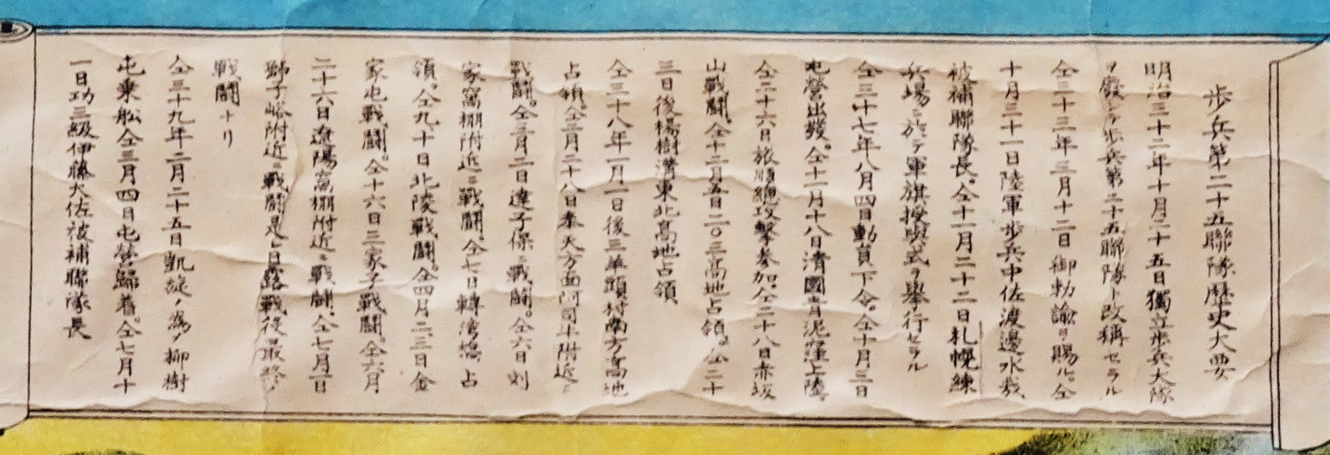 歩兵第二十五聯隊歴史大要
明治三十二年十月二十五日獨立歩兵大隊
ヲ廢シテ歩兵第二十五聯隊ト改稱セラル
仝三十三年三月十二日御勅諭ヲ賜ル。仝
十月三十一日陸軍歩兵中佐渡邊水哉
被補聯隊長。仝十一月二十二日札幌練
兵場ニ於テ軍旗授與式ヲ擧行セラル
仝三十七年八月四日動員下令。仝十月三日
屯營出發。仝十一月十八日清國青泥窪上陸
仝二十六日旅順總攻撃參加。仝二十八日赤坂
山戰鬪。仝十二月五日二〇三高地占領。仝二十
三日後楊樹溝東北高地占領
仝三十八年一月一日後三羊頭村南方高地
占領仝二月二十八日奉天方面問司牛附近ニ
戰鬪。仝三月二日達子堡ニ戰鬪。仝六日刘
家窩棚附近ニ戰鬪。仝七日轉湾橋占
領。仝九、十日北陵戰鬪。仝四月二、三日金
家屯戰鬪。仝十六日三家子戰鬪。仝六月
二十六日遼陽窩棚附近ニ戰鬪。仝七月一日
獅子峪附近ニ戰鬪是レ日露戰役最終ノ
戰鬪ナリ
仝三十九年二月二十五日凱旋ノ為メ柳樹
屯乗船仝三月四日屯營歸着。仝七月十
一日功三級伊藤大佐被補聯隊長